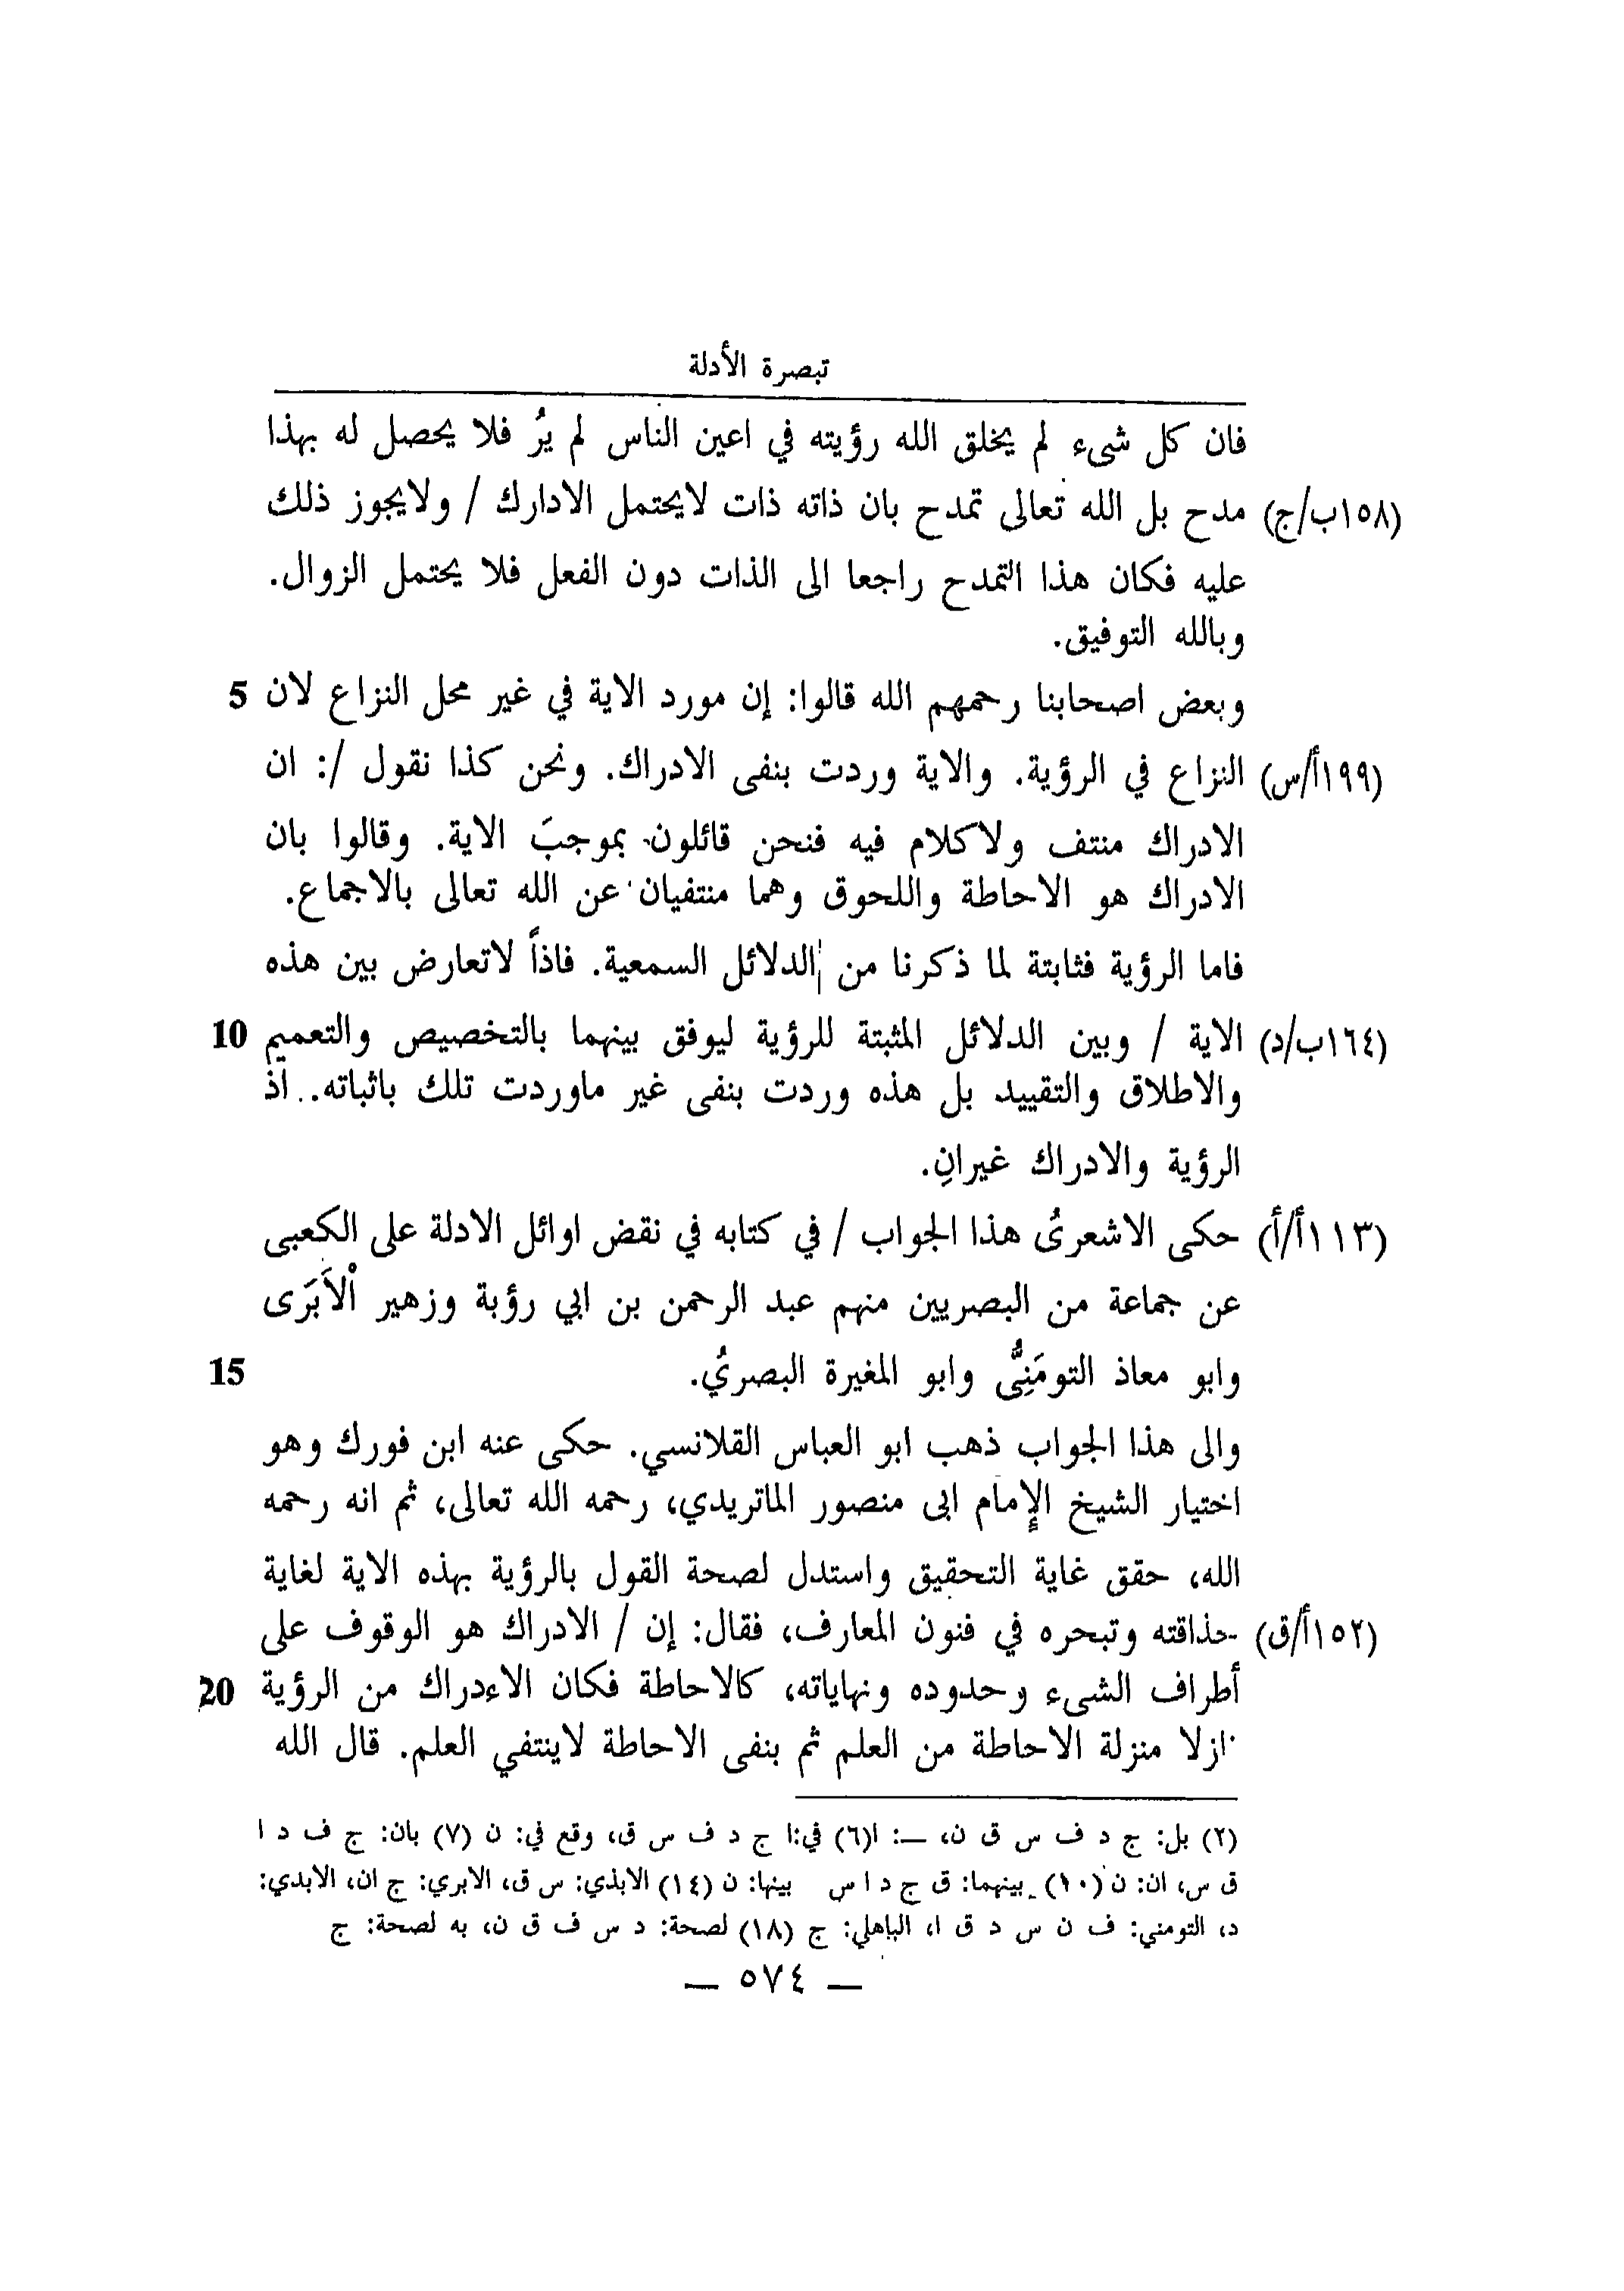 تبصرة الأدلة
فان كل شىء لم يخلق الله رؤيته في اعين الناس لم يرُ فلا يحصل له بهذا
(١٥٨ب/ج) مدح بل الله تعالى تمدح بان ذاته ذات لايحتمل الادارك / ولايجوز ذلك
عليه فكان هذا التمدح راجعا الى الذات دون الفعل فلا يحتمل الزوال.
وبالله التوفيق.
وبعض اصحابنا رحمهم الله قالوا: إن مورد الاية في غير محل النزاع لان 5
(١٩٩أ/س) النزاع في الرؤية. والاية وردت بنفى الادراك. ونحن كذا نقول /: ان
الادراك منتف ولاكلام فيه فنحن قائلون بموجبَ الاية. وقالوا بان
الادراك هو الاحاطة واللحوق وهما منتفيان عن الله تعالى بالاجماع.
فاما الرؤية فثابتة لما ذكرنا من الدلائل السمعية. فاذاً لاتعارض بين هذه
(١٦٤ب/د) الاية / وبين الدلائل المثبتة للرؤية ليوفق بينهما بالتخصيص والتعميم 10
والاطلاق والتقييد بل هذه وردت بنفى غير ماوردت تلك باثباته.. اذ
الرؤية والادراك غيرانِ.
(١١٣أ/أ) حكى الاشعرىُ هذا الجواب / في كتابه في نقض اوائل الادلة على الكعبى
عن جماعة من البصريين منهم عبد الرحمن بن ابي رؤبة وزهير اْلاَبَرَى
وابو معاذ التومَنِىُّ وابو المغيرة البصريُ. 15
والى هذا الجواب ذهب ابو العباس القلانسي. حكى عنه ابن فورك وهو
اختيار الشيخ الإمام ابى منصور الماتريدي، رحمه الله تعالى، ثم انه رحمه
الله، حقق غاية التحقيق واستدل لصحة القول بالرؤية بهذه الاية لغاية
(١٥٢أ/ق) حذاقته وتبحره في فنون المعارف، فقال: إن / الادراك هو الوقوف على
أطراف الشىء وحدوده ونهاياته، كالاحاطة فكان الاءدراك من الرؤية 20
نازلا منزلة الاحاطة من العلم ثم بنفى الاحاطة لاينتفي العلم. قال الله
(٢) بل: ج د ف س ق ن، —: ا(٦) في:ا ج د ف س ق، وقع في: ن (٧) بان: ج ف د ا
ق س، ان: ن (١٠) بينهما: ق ج د ا س بينها: ن (١٤) الابذي: س ق، الابري: ج ان، الابدي:
د، التومني: ف ن س د ق ا، الباهلي: ج (١٨) لصحة: د س ف ق ن، به لصحة: ج
— ٥٧٤ —